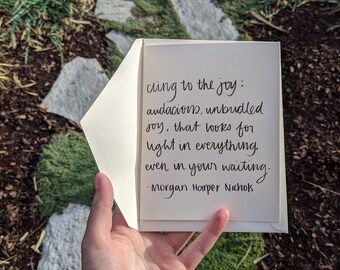 cling to the joy:
audacious, unbridled
joy, that looks for
light in everything
even in your waiting.
- Morgan Harper Nichols